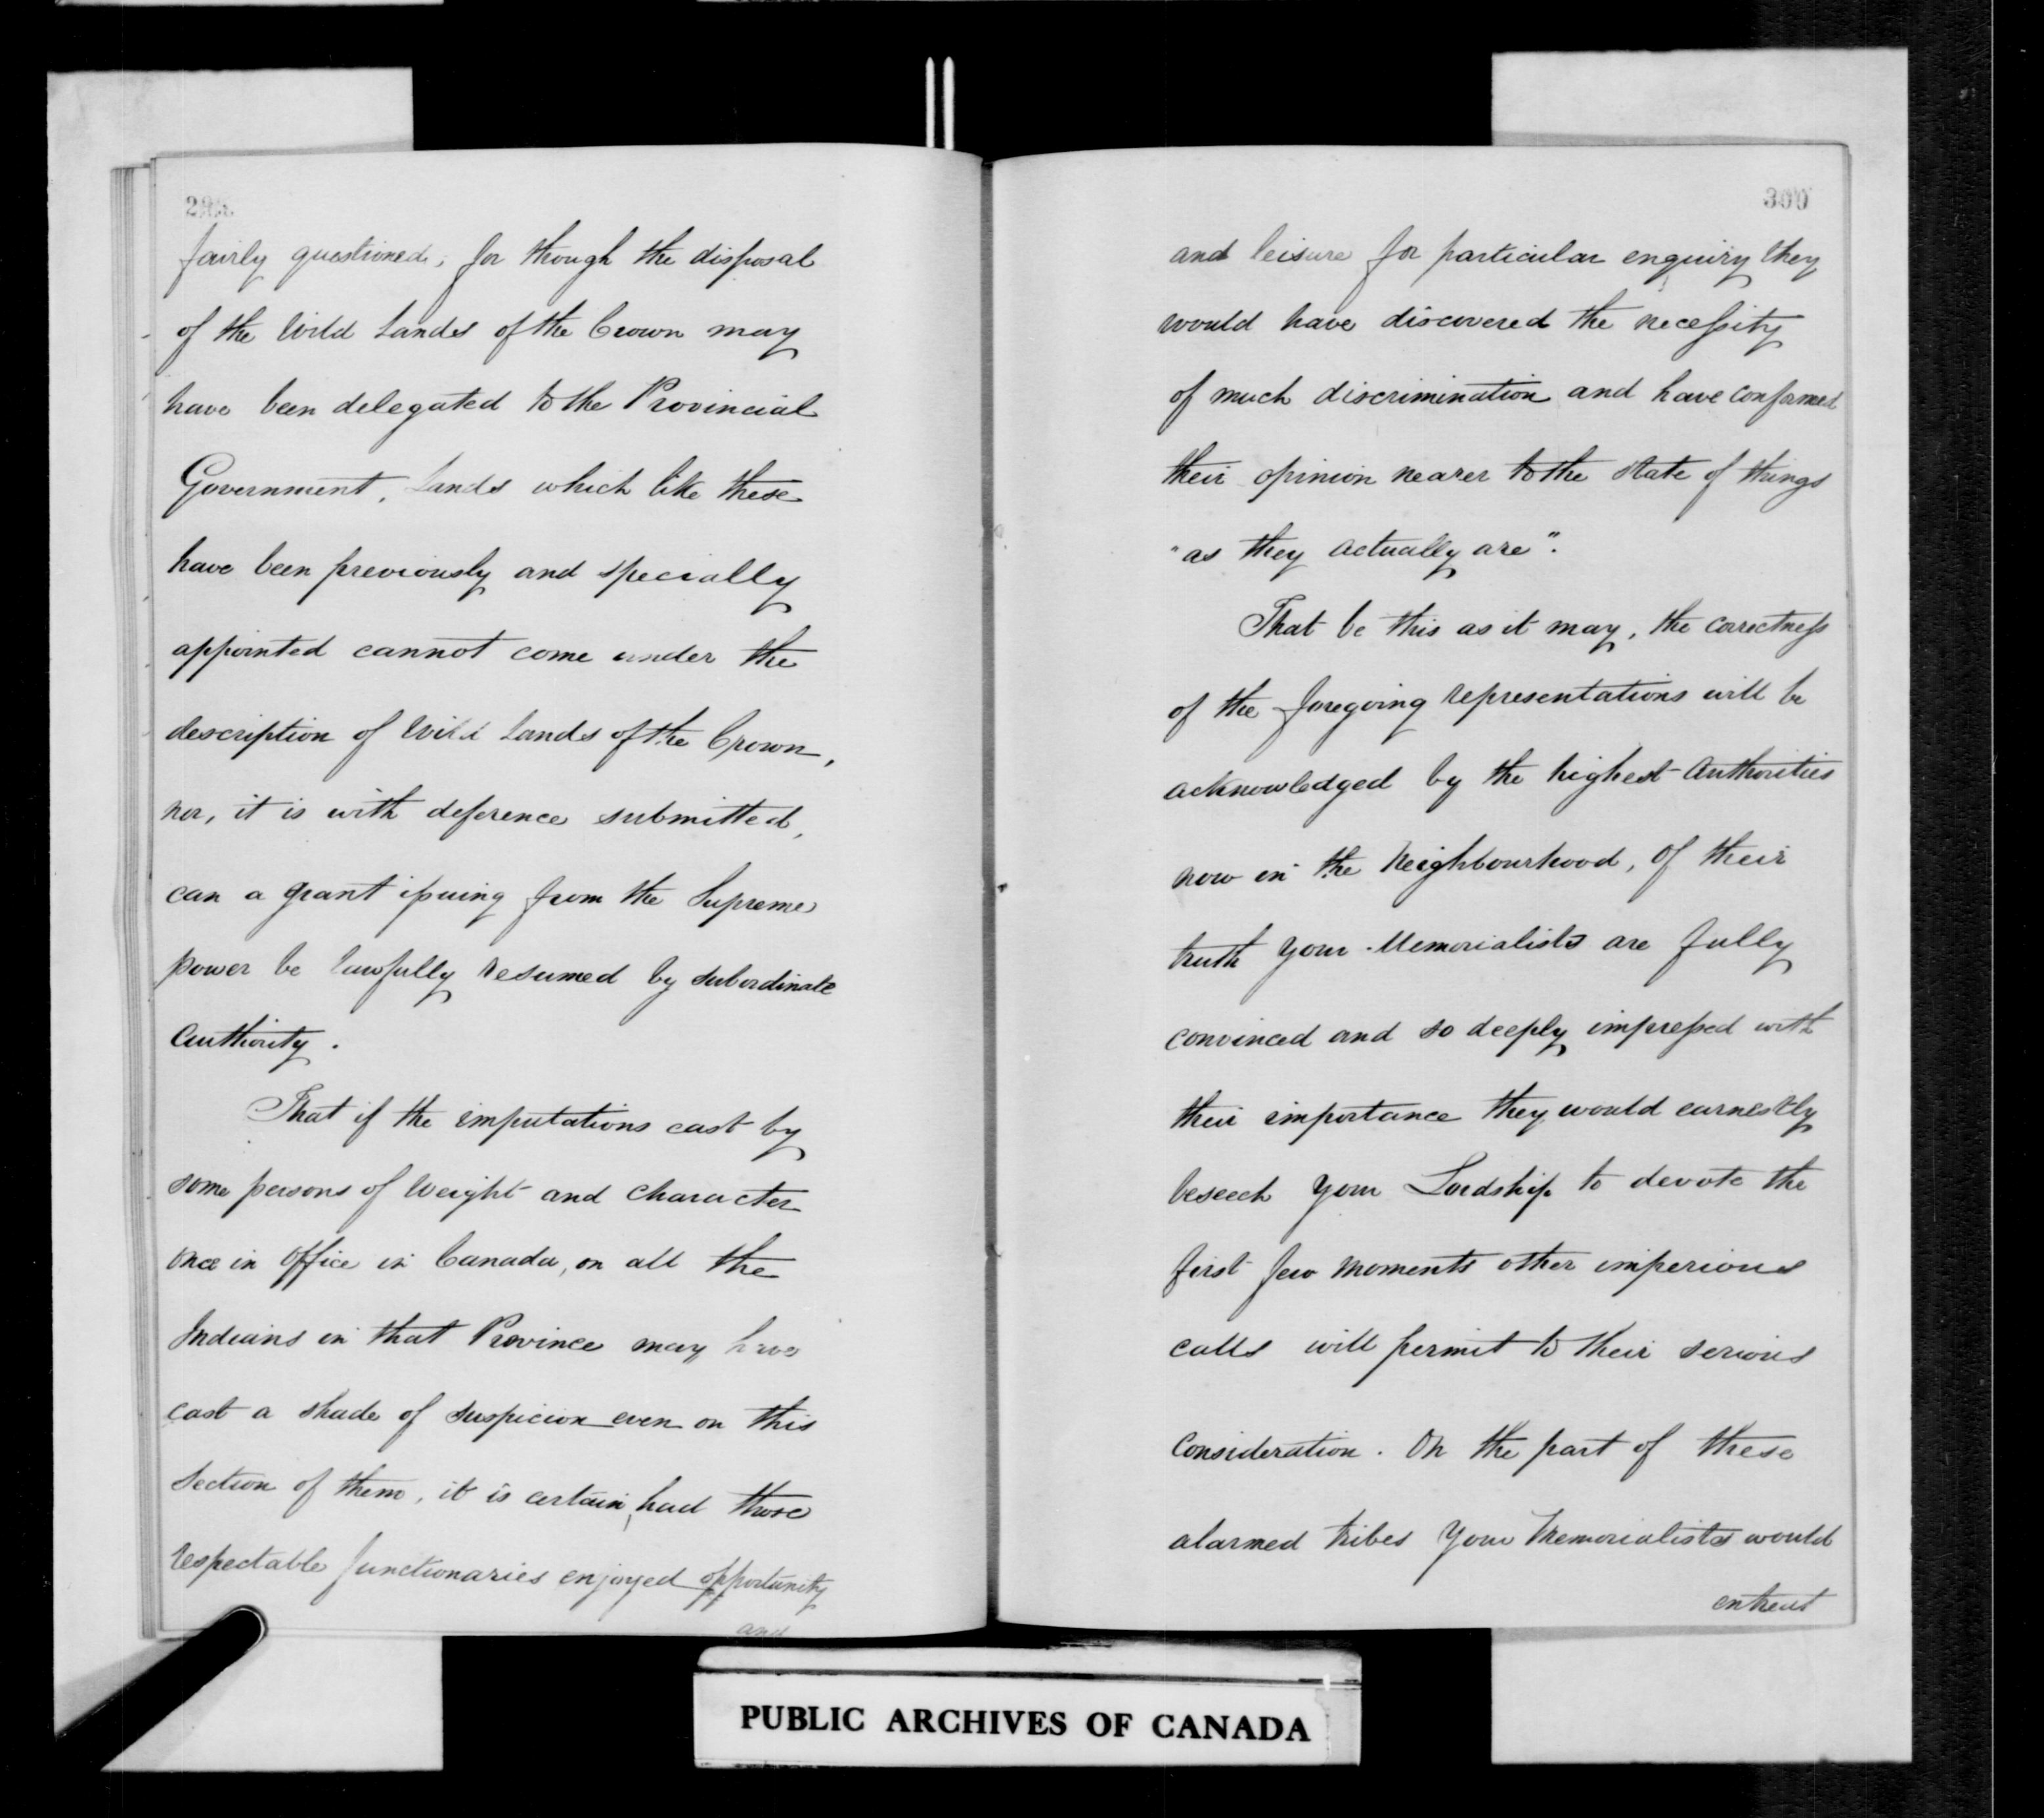 fairly questioned, for though the disposal
of the Wild Lands of the Crown may
have been delegated to the Provincial
Government, Lands which like these
have been previously and specially
appointed cannot come under the
description of Wild Lands of the Crown,
nor, it is with deference submitted,
can a grant issuing from the Supreme
power be lawfully resumed by subordinate
Authority.
That if the imputations cast by
some persons of Weight and Character
once in Office in Canada, on all the
Indians in that Province may have
cast a shade of suspicion even on this
Section of them, it is certain, had those
respectable functionaries enjoyed opportunity
and
300
and leisure for particular enquiry they
would have discovered the necessity
of much discrimination and have conformed
their opinion nearer to the state of things
"as they actually are".
That be this as it may, the correctness
of the foregoing representations will be
acknowledged by the highest Authorities
now in the Neighbourhood, of their
truth your Memorialists are fully
convinced and so deeply impressed with
their importance they would earnestly
beseech your Lordship to devote the
first few moments other imperious
calls will permit to their serious
Consideration. On the part of these
alarmed tribes Your Memorialists would
entreat
PUBLIC ARCHIVES OF CANADA